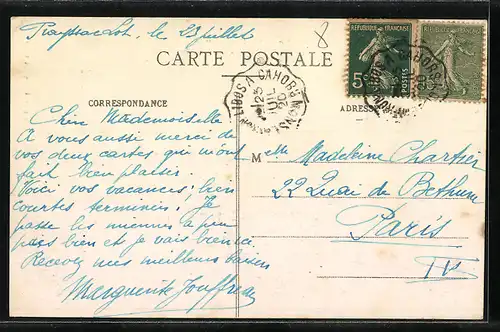 Prayssac Lot, le 23 juillet
8
CARTE POSTALE
CORRESPONDANCE
ADRESSE
RÉPUBLIQUE FRANÇAISE
5c
POSTES
LIBOS A CAHORS
25
JUIL
20
Chère Mademoiselle
A vous aussi merci de
vos deux cartes qui m'ont
fait bien plaisir.
Voici vos vacances, bien
courtes terminées. Je
passe les miennes à peu
près bien et je vais bien ici.
Recevez mes meilleurs baisers
Marguerite Jouffreau
Melle Madeleine Chartier
22 Quai de Bethune
Paris
IVe